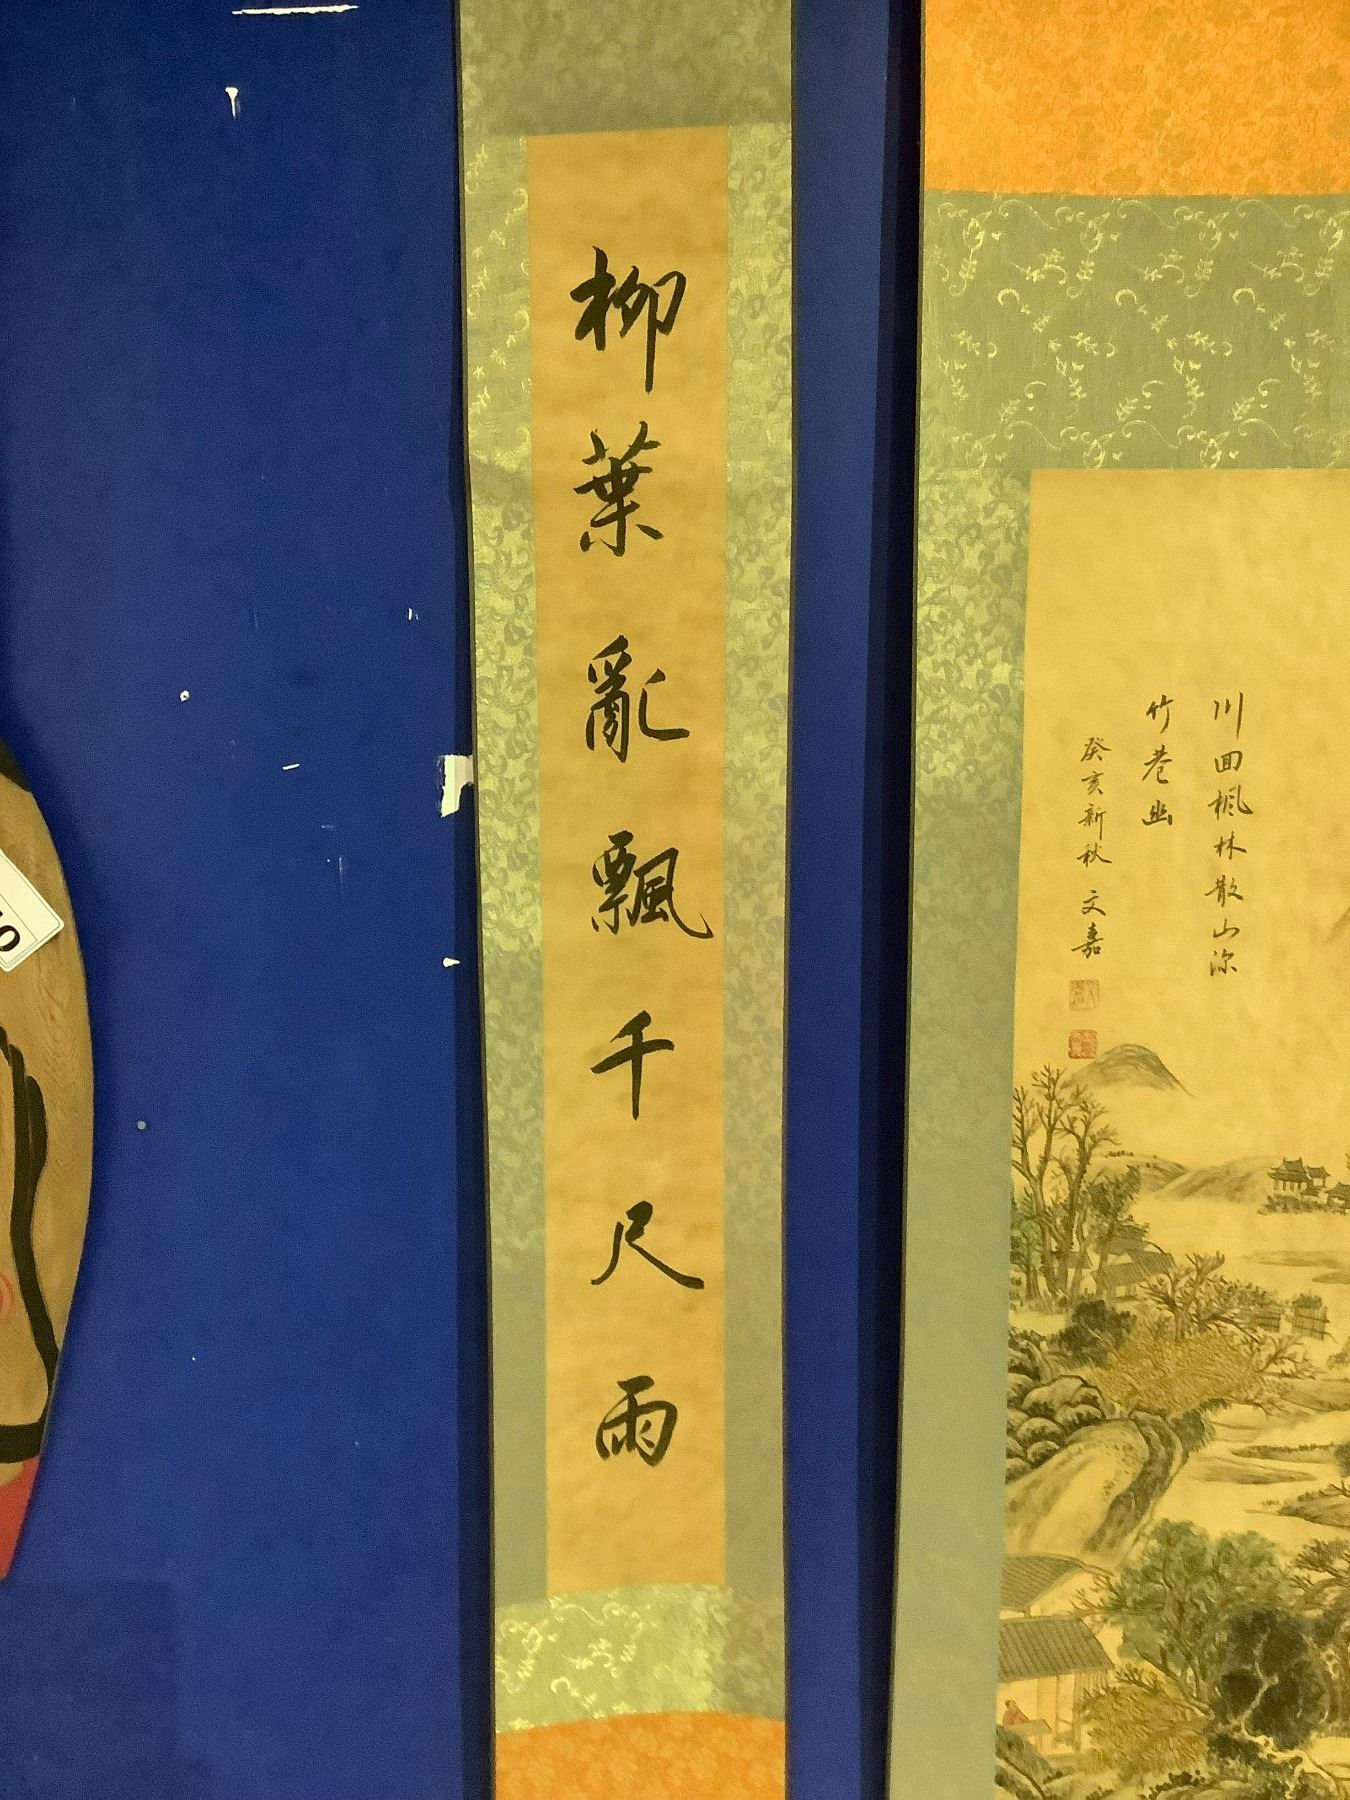 柳葉亂飄千尺雨
川回楓林散山深
竹巷幽
癸亥新秋 文嘉